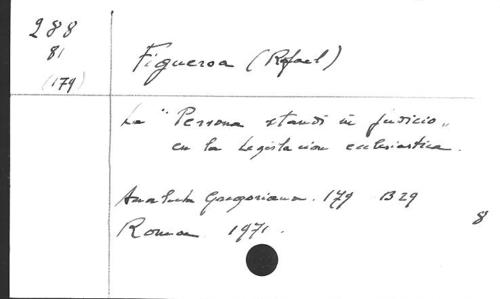 288
81
(179)
Figueroa (Rafael)
La "Persona standi in judicio"
en la Legislacion eclesiastica.
Analecta Gregoriana. 179 B29
8
Roma 1971.